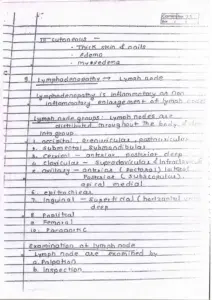 III cutaneous -
• Thick skin & nails
• Edema
• Myxedema
Lymphadenopathy → Lymph node
Lymphadenopathy is inflammatory or non
inflammatory enlargement of lymph node
Lymph node groups: Lymph nodes are
distributed throughout the body &
into group.
1. occipital, preauricular, postauricular
2. Submental, Submandibular
3. Cervical - anterior, posterior, deep
4. Clavicular - Supraclavicular, Infraclavicul
5. axillary - anterior (pectoral) lateral
Posterior (Subscapular),
apical medial
6. epitrochlear
7. Inguinal - Superficial (horizontal
deep
8. Popliteal
9. Femoral
10. Paraaortic
Examination of Lymph node
Lymph node are examined by
a. Palpation
b. Inspection